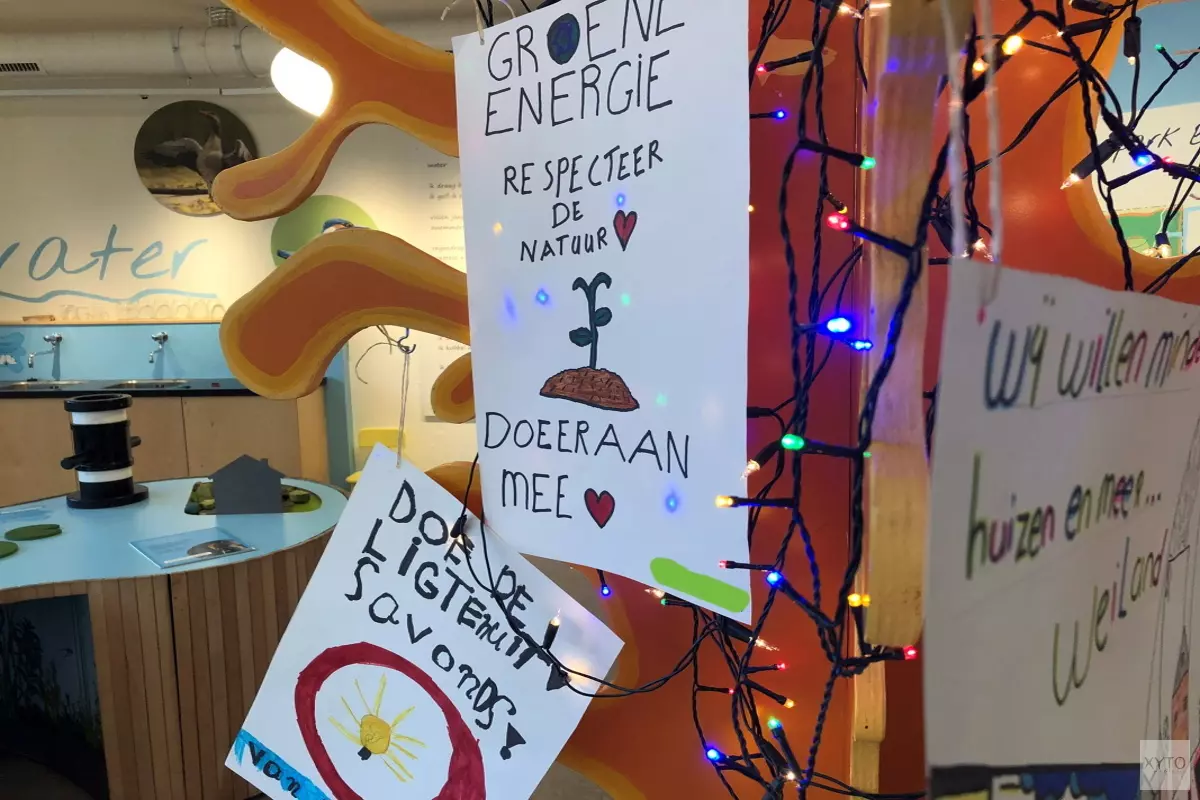 GROENE
ENERGIE
RESPECTEER
DE
NATUUR
DOEERAAN
MEE
DOE DE
LIGTEN UIT
SavondS!
van
water
water
Wij willen minder
huizen en meer...
WeiLand
XYTO